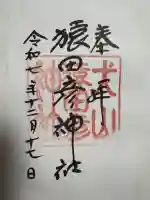 奉拝
猿田彦神社
令和七年十二月十七日